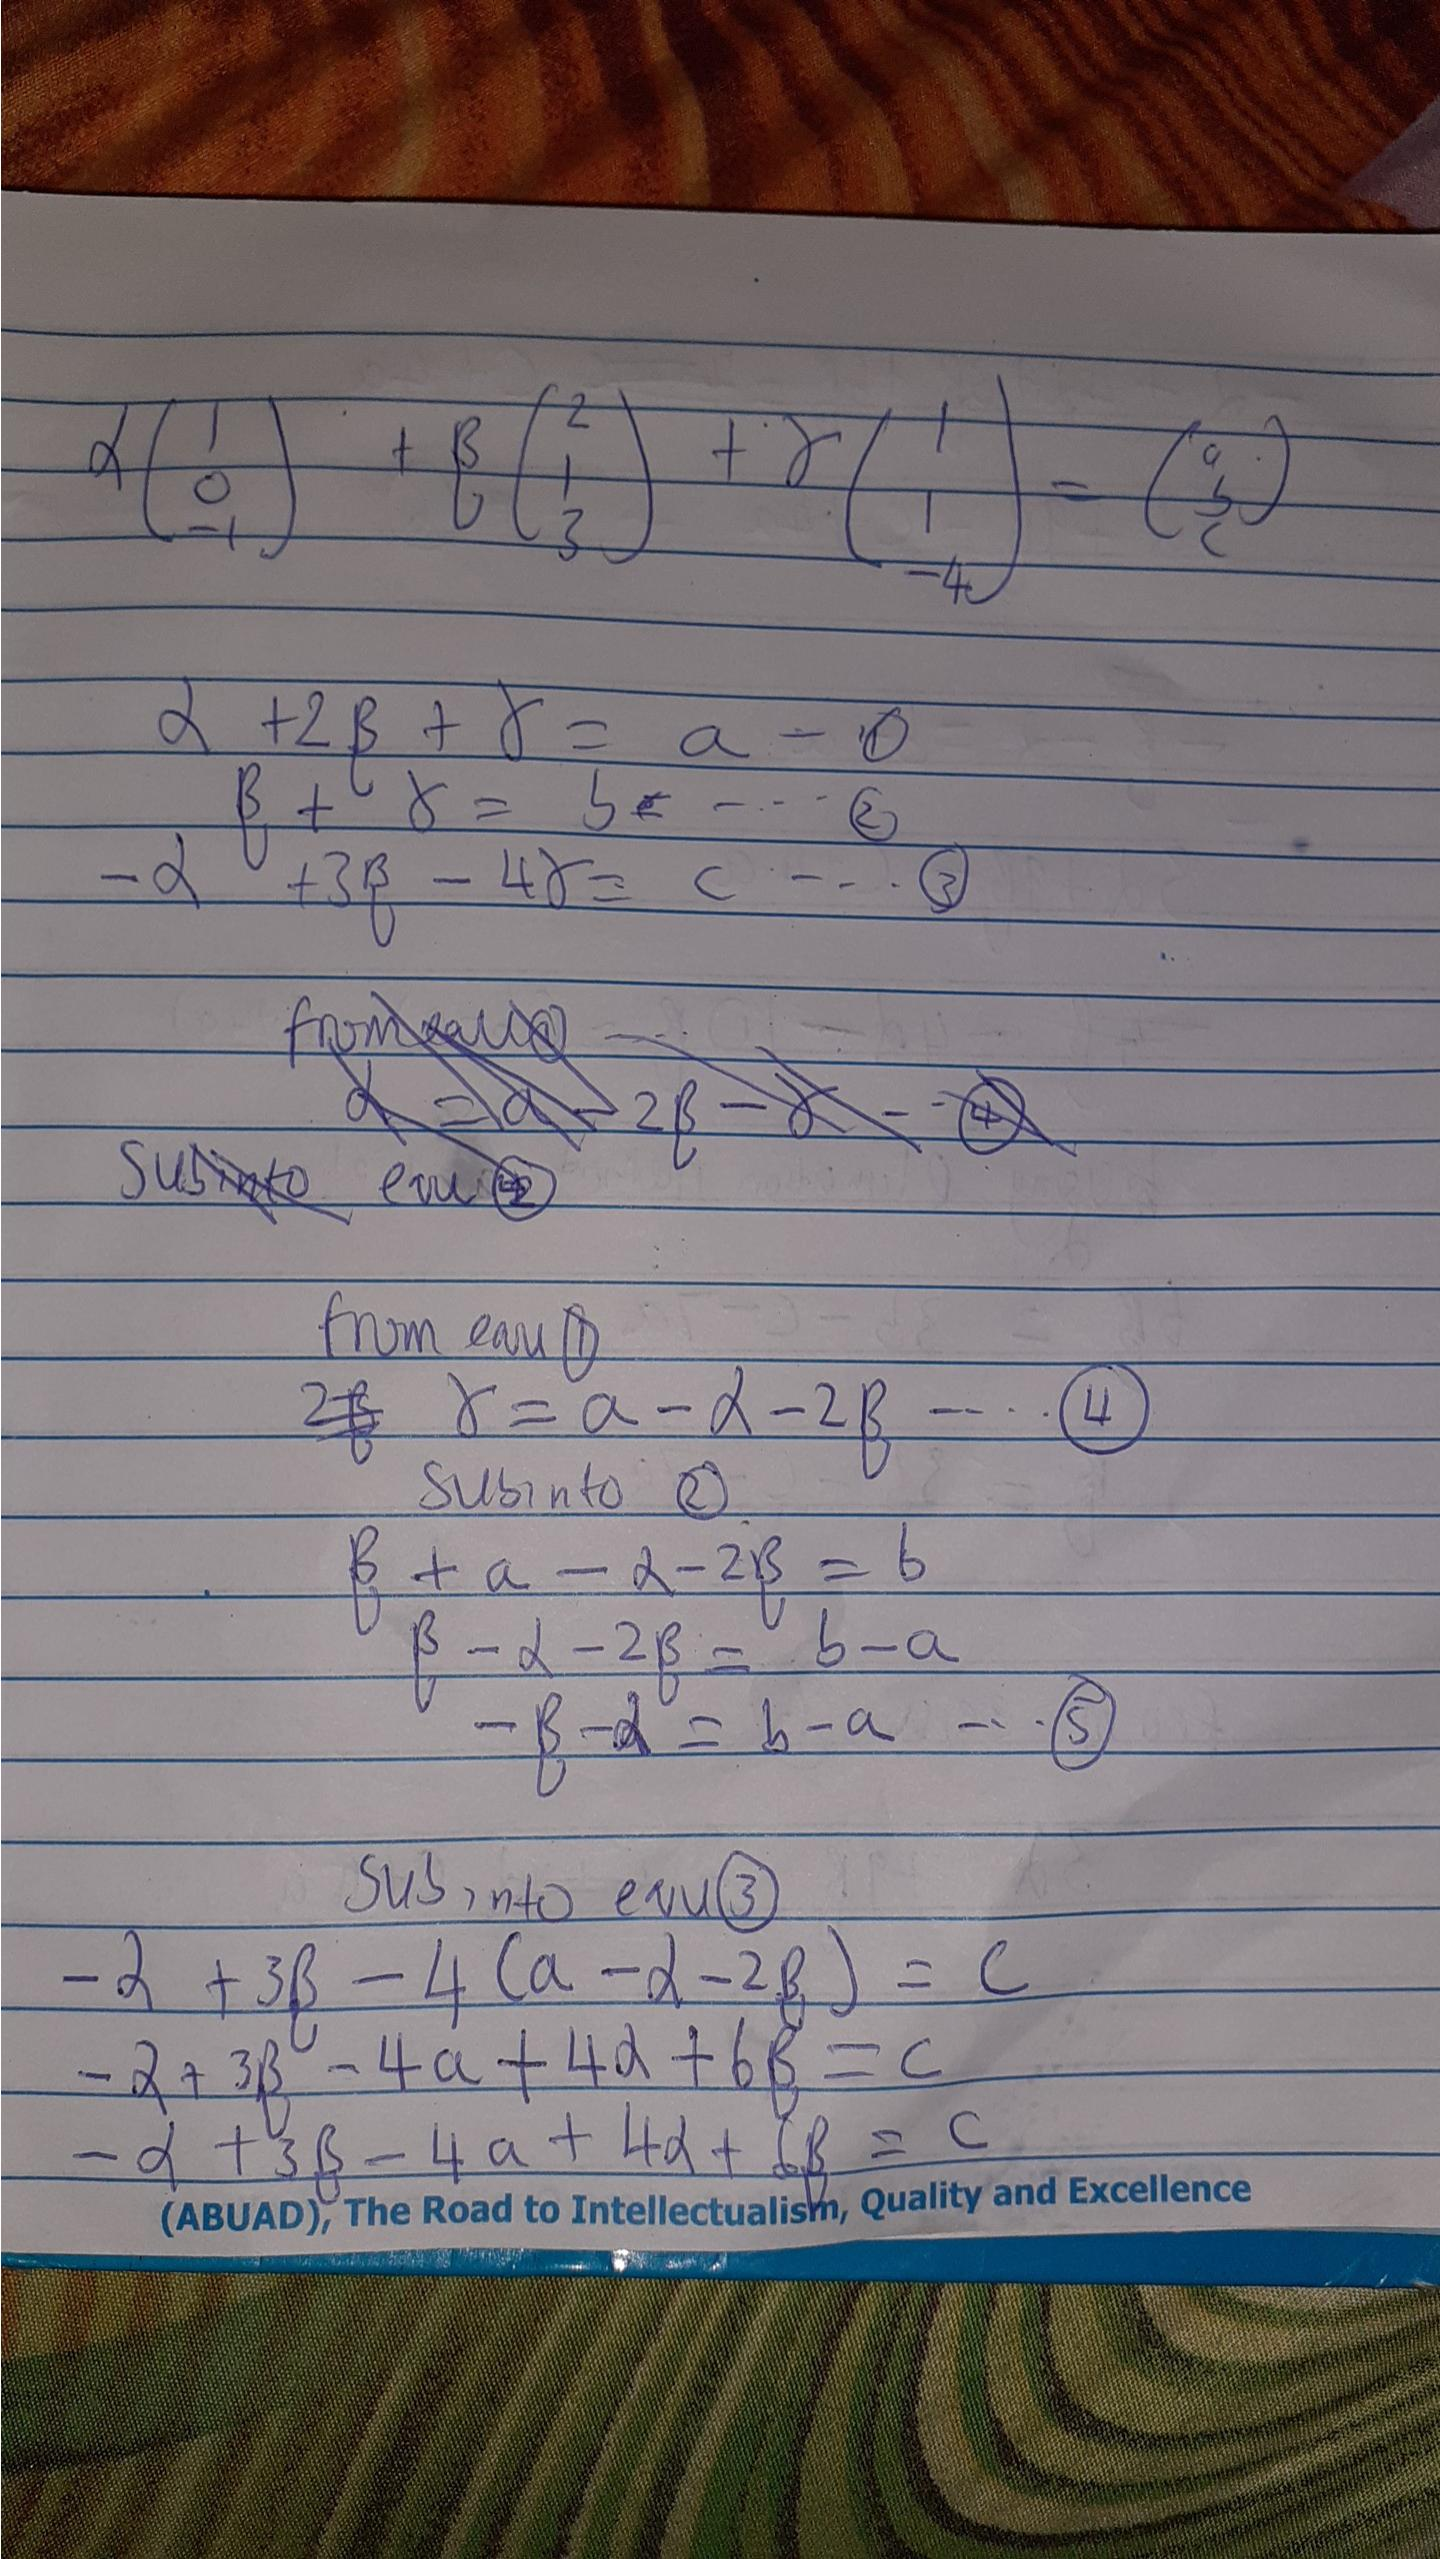 α(1 0 -1) + β(2 1 3) + γ(1 1 -4) = (a b c)
α + 2β + γ = a - ①
β + γ = b - ---- ②
-α + 3β - 4γ = c --- ③
from equ ① ---
α = a - 2β - γ -- ④
Subinto equ ②
from equ ①
2β γ = a - α - 2β --- ④
Subinto ②
β + a - α - 2β = b
β - α - 2β = b - a
-β - α = b - a --- ⑤
Sub into equ ③
-α + 3β - 4(a - α - 2β) = c
-α + 3β - 4a + 4α + 6β = c
-α + 3β - 4a + 4α + 6β = c
(ABUAD), The Road to Intellectualism, Quality and Excellence